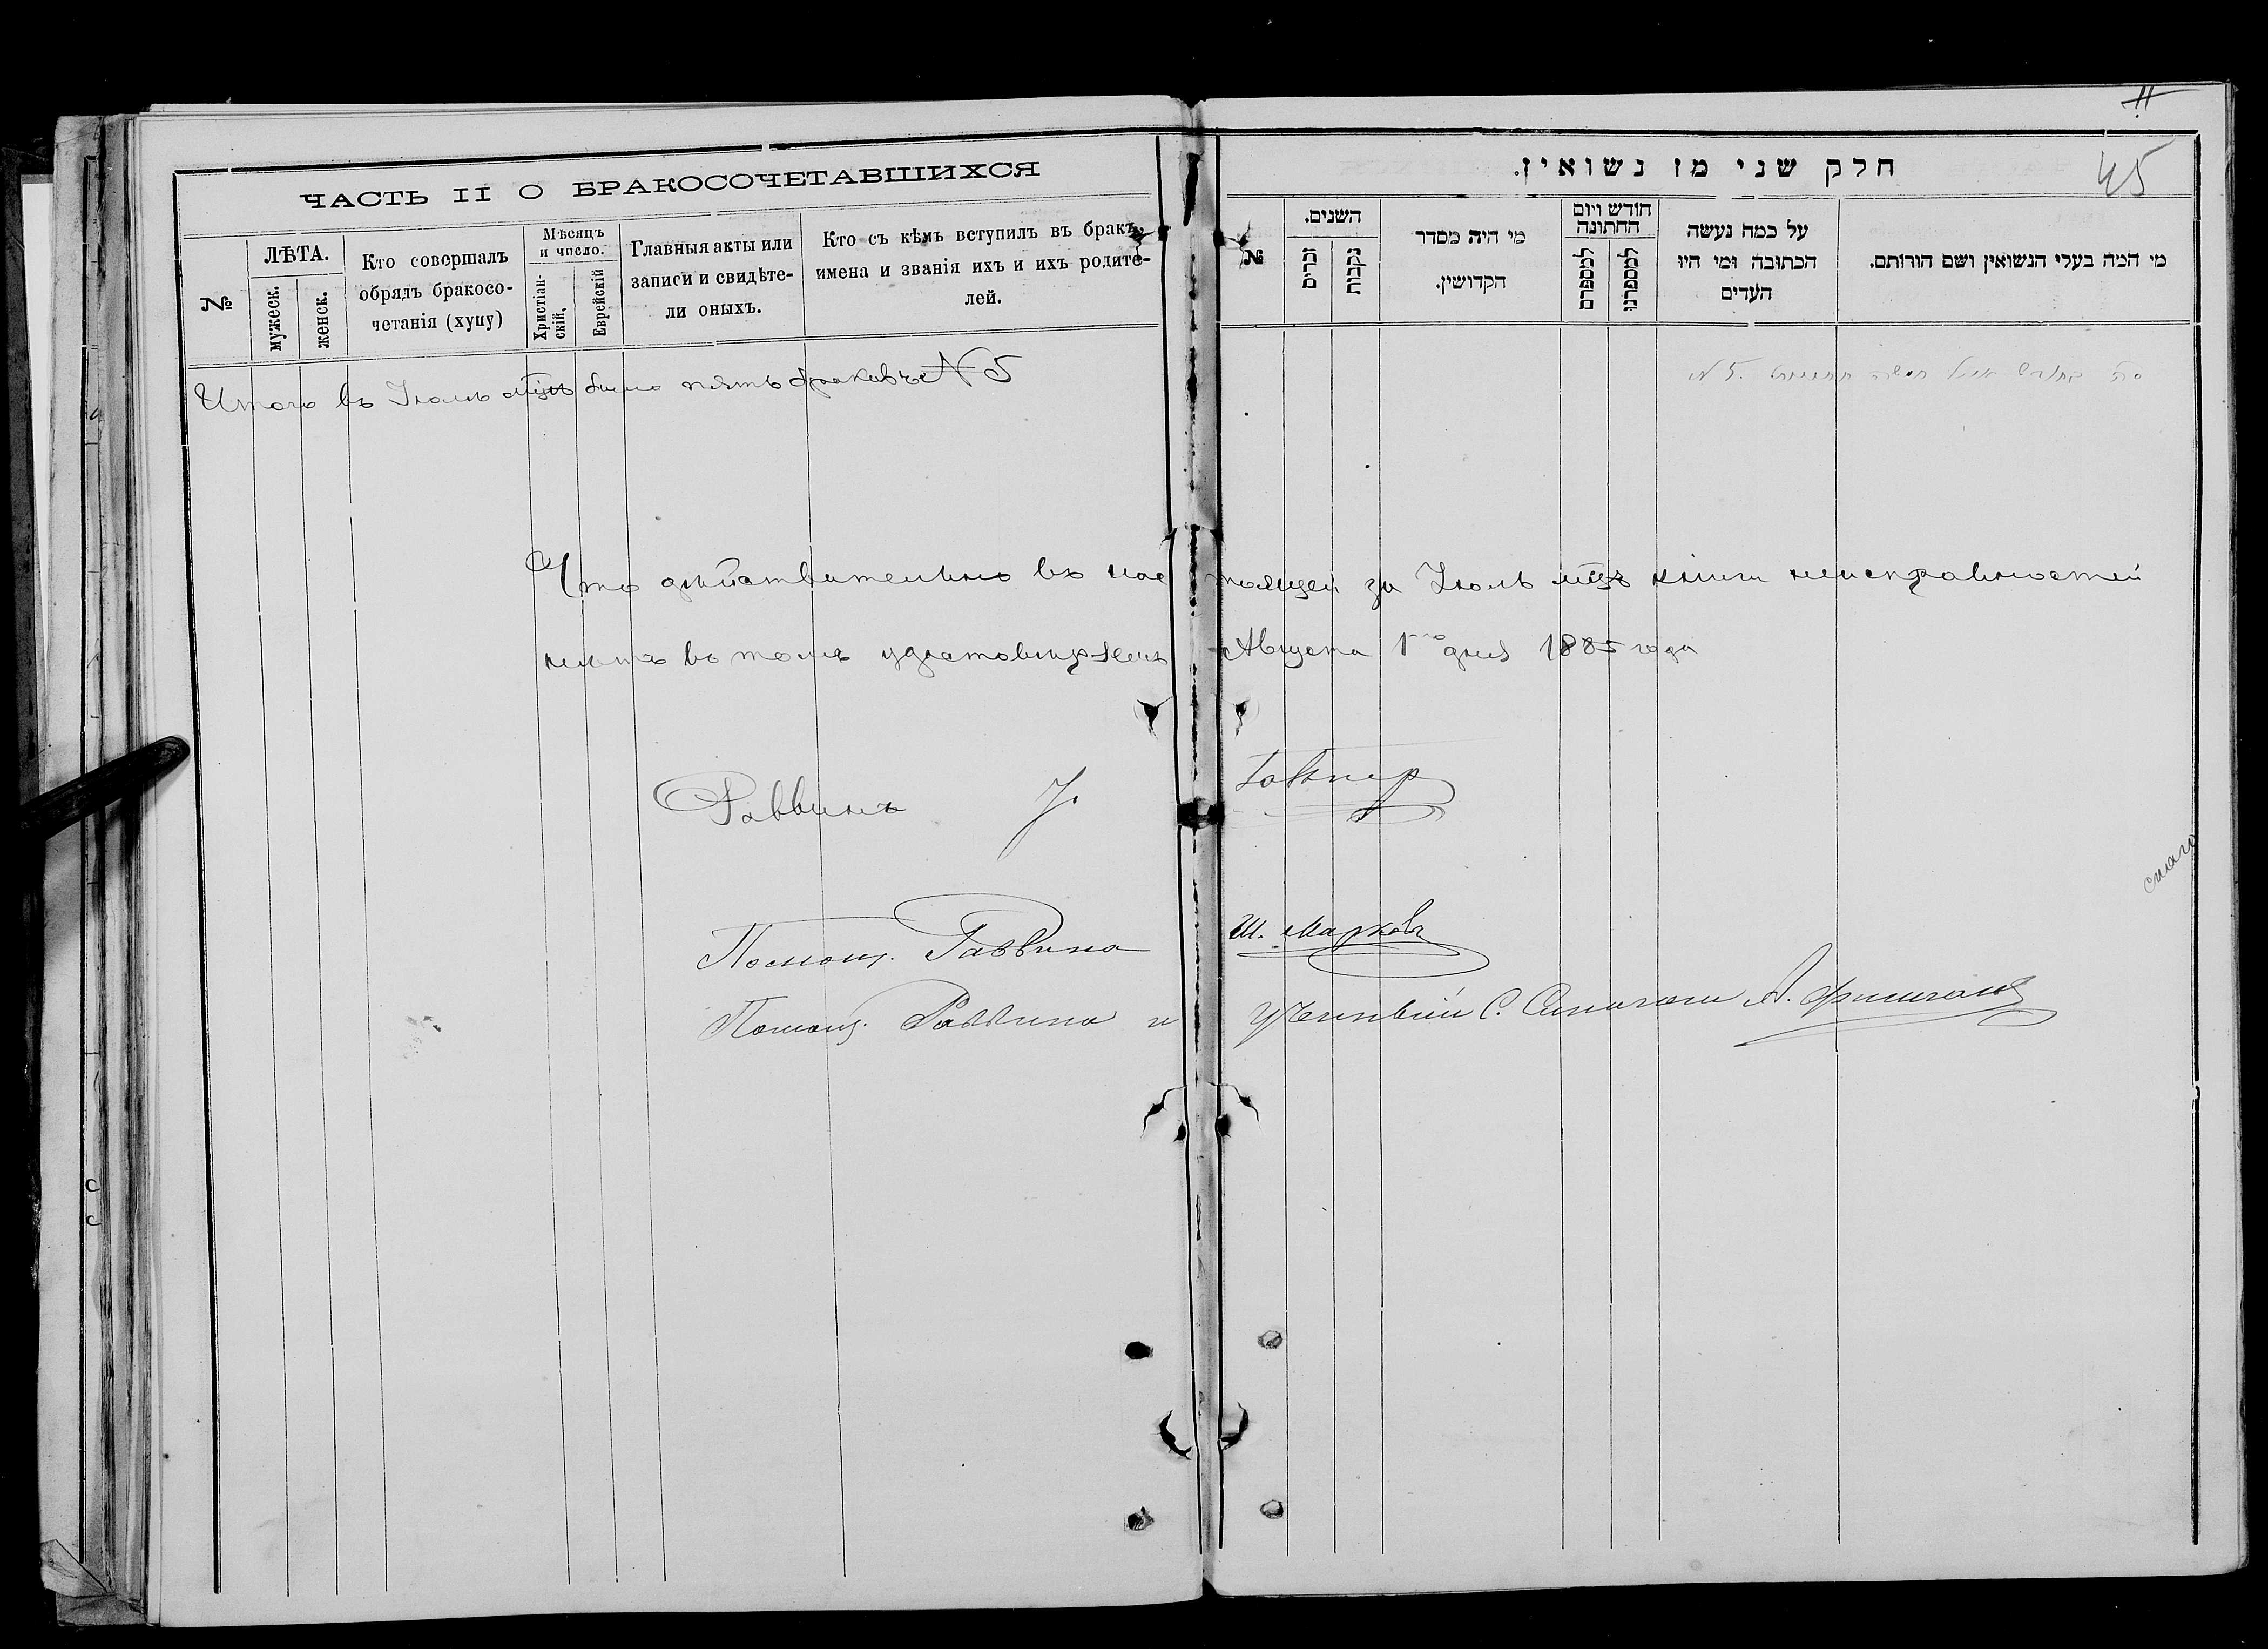 ЧАСТЬ II О БРАКОСОЧЕТАВШИХСЯ
№
ЛѢТА.
мужеск.
женск.
Кто совершалъ
обрядъ бракосо-
четанія (хупу)
Мѣсяцъ
и число.
Христіан-
скій,
Еврейскій
Главныя акты или
записи и свидѣте-
ли оныхъ.
Кто съ кѣмъ вступилъ въ бракъ,
имена и званія ихъ и ихъ родите-
лей.
Итого въ Іюлѣ мцѣ было пять браковъ N 5
11
45
חלק שני מן נשואין.
№
השנים.
זכרים
נקבות
מי היה מסדר
הקדושין.
חודש ויום
החתונה
למספרם
למספרנו
על כמה נעשה
הכתובה ומי היו
העדים
מי המה בעלי הנשואין ושם הורותם.
5 №
Что дѣйствительно въ настоящей за Іюль мцъ книги неисправностей
нѣтъ въ томъ удостовѣряемъ Августа 1го дня 1885 года
Раввинъ
Помощ. Раввина Ш. Марковъ
Помощ. Раввина и